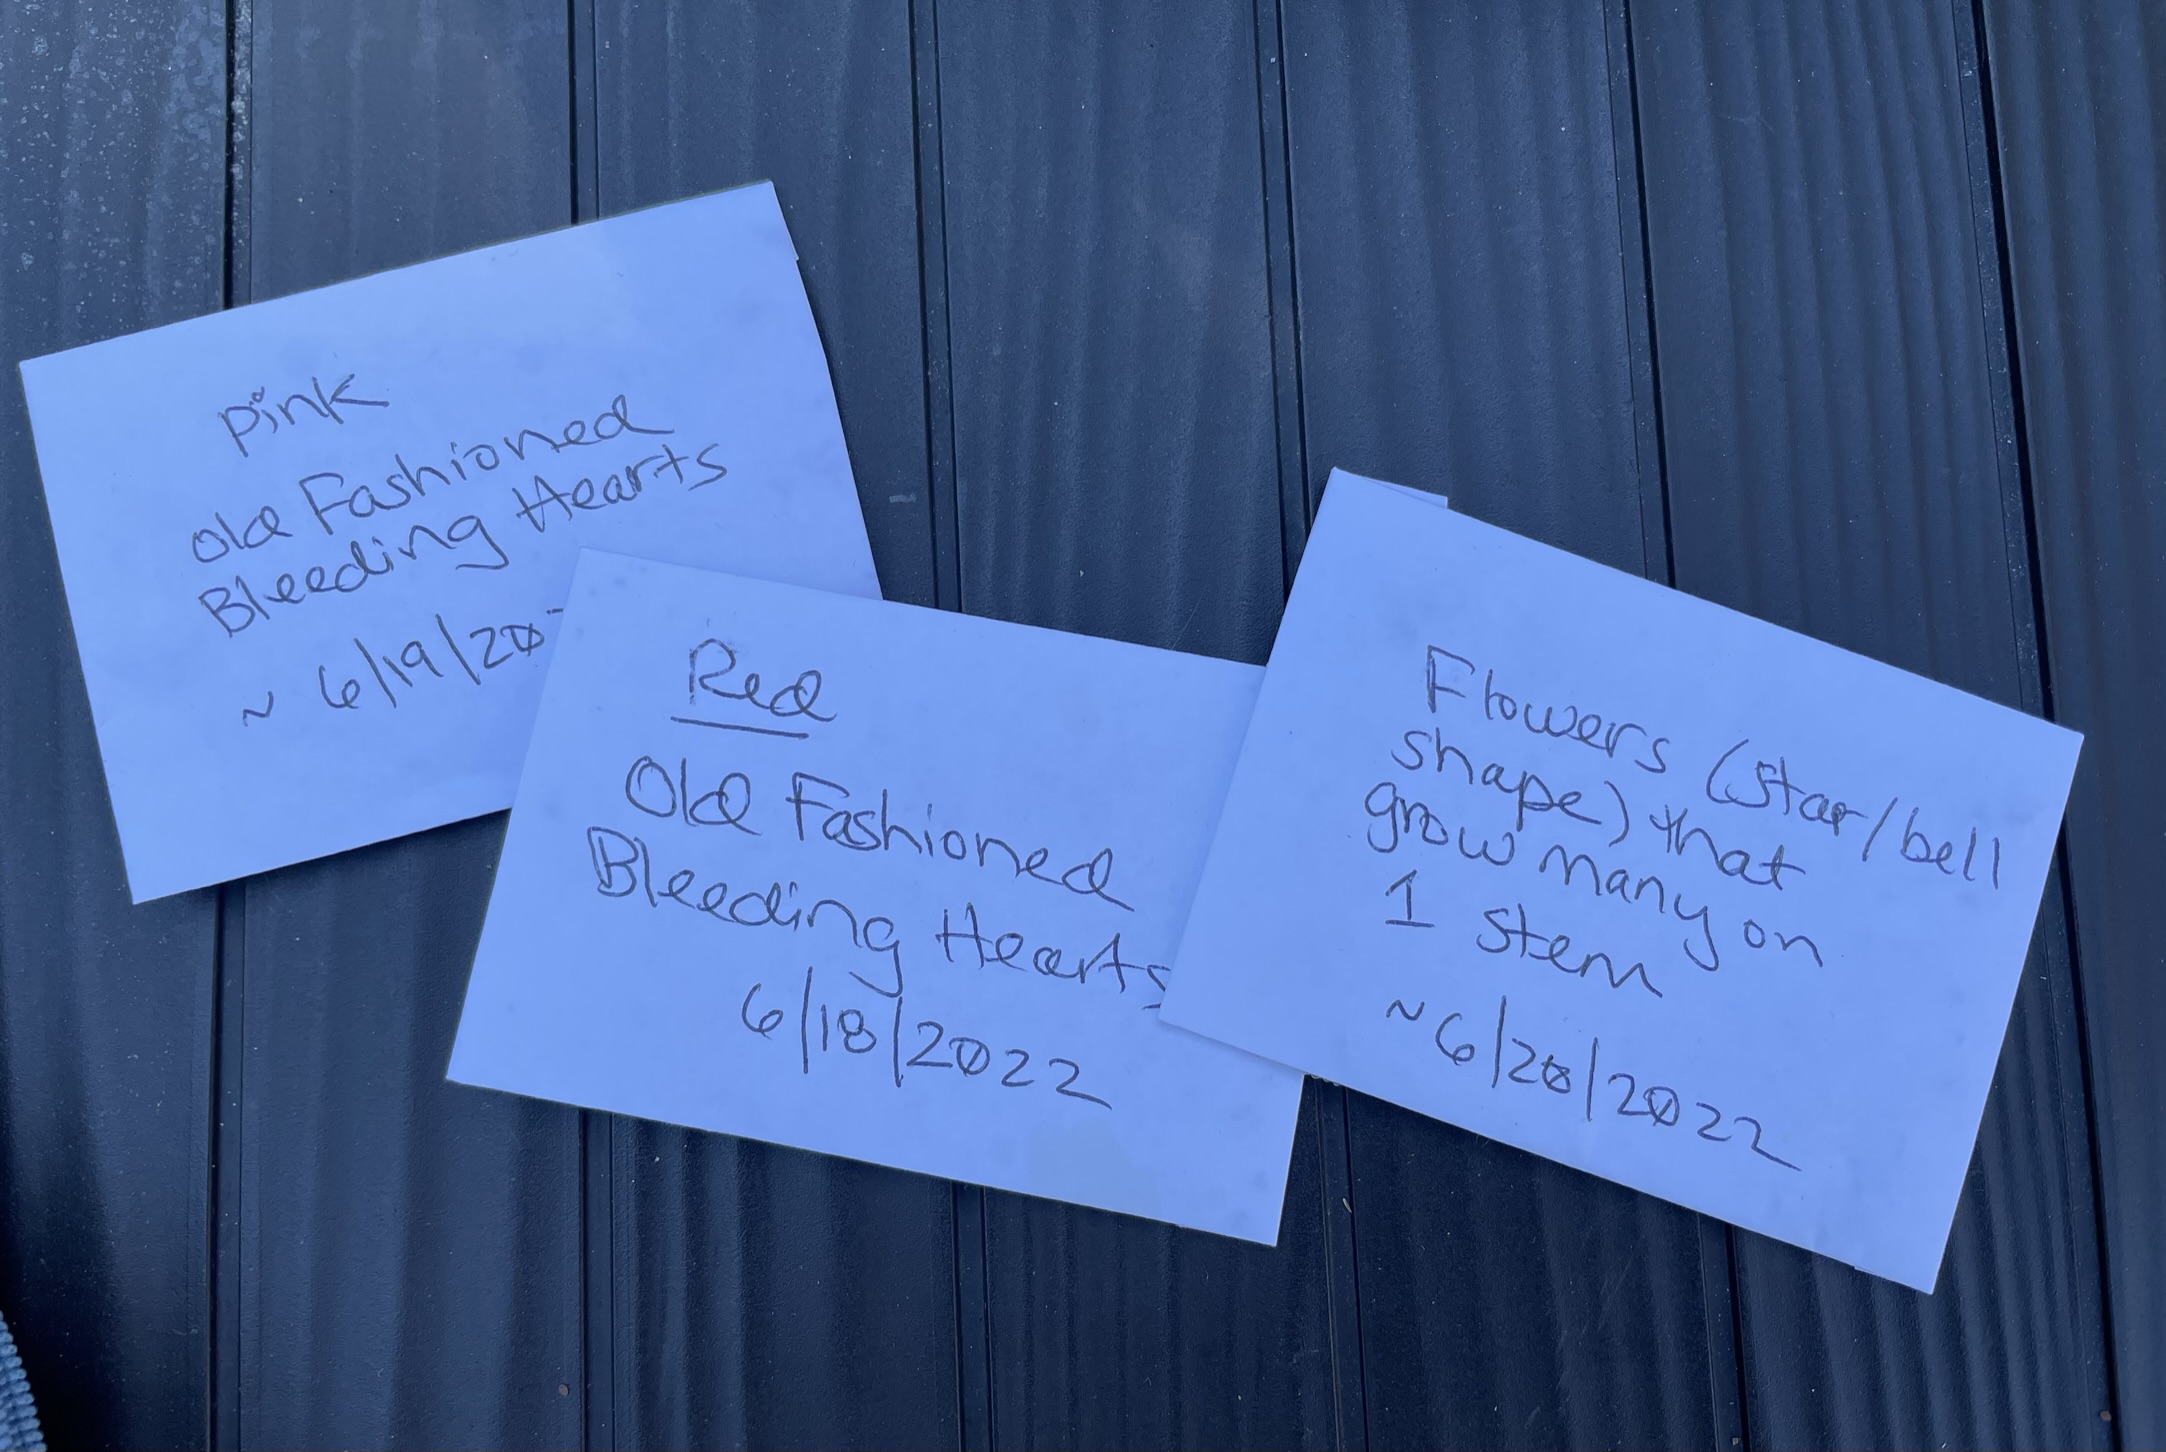 Pink
Old Fashioned
Bleeding Hearts
~ 6/19/20
Red
Old Fashioned
Bleeding Hearts
6/18/2022
Flowers (star/bell
shape) that
grow many on
1 stem
~6/20/2022